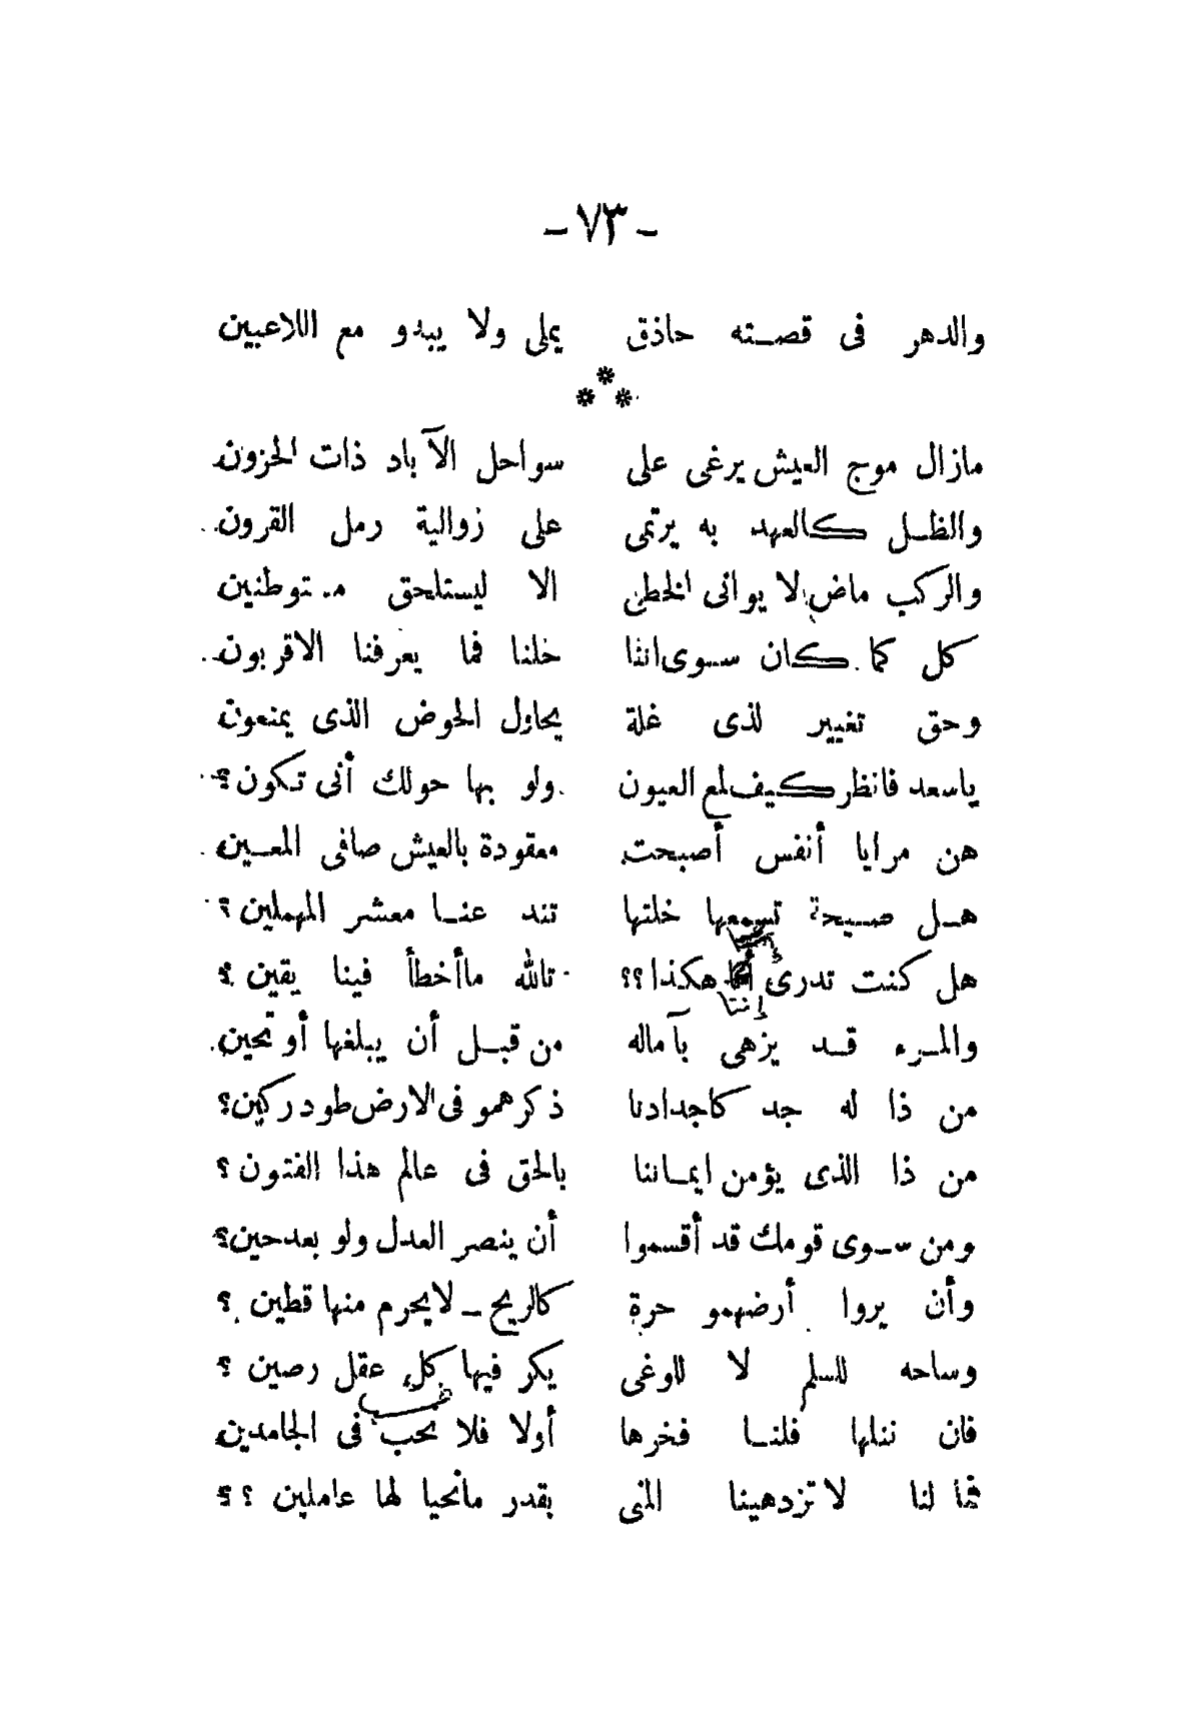 - ٧٣ -
والدهر فى قصته حاذق يملى ولا يبدو مع اللاعبين
* * *
مازال موج العيش يرغى على سواحل الآباد ذات الحزون
والظل كالعهد به يرتمى على زوالية رمل القرون
والركب ماض لا يوانى الخطى الا ليستلحق متوطنين
كل كما كان سوى اننا خلنا فما يعرفنا الاقربون
وحق تغيير لذى غلة يحاول الحوض الذى يمنعون
ياسعد فانظر كيف لمع العيون ولو بها حولك أنى تكون؟
هن مرايا أنفس أصبحت معقودة بالعيش صافى المعين
هل صيحة تسمعها خلتها تند عنا معشر المهملين ؟
هل كنت تدرى إننا هكذا ؟؟ تالله ماأخطأ فينا يقين ؟
والمرء قد يزهى بآماله من قبل أن يبلغها أو تحين
من ذا له جد كاجدادنا ذكرهمو فى الارض طود ركين؟
من ذا الذى يؤمن ايماننا بالحق فى عالم هذا الفتون ؟
ومن سوى قومك قد أقسموا أن ينصر العدل ولو بعد حين؟
وأن يروا أرضهمو حرة كالريح - لايحرم منها قطين ؟
وساحه للسلم لا للوغى يكر فيها كل عقل رصين ؟
فان ننلها فلنا فخرها أولا فلا نحب فى الجامدين
فما لنا لا تزدهينا المنى بقدر مانحيا لها عاملين ؟؟